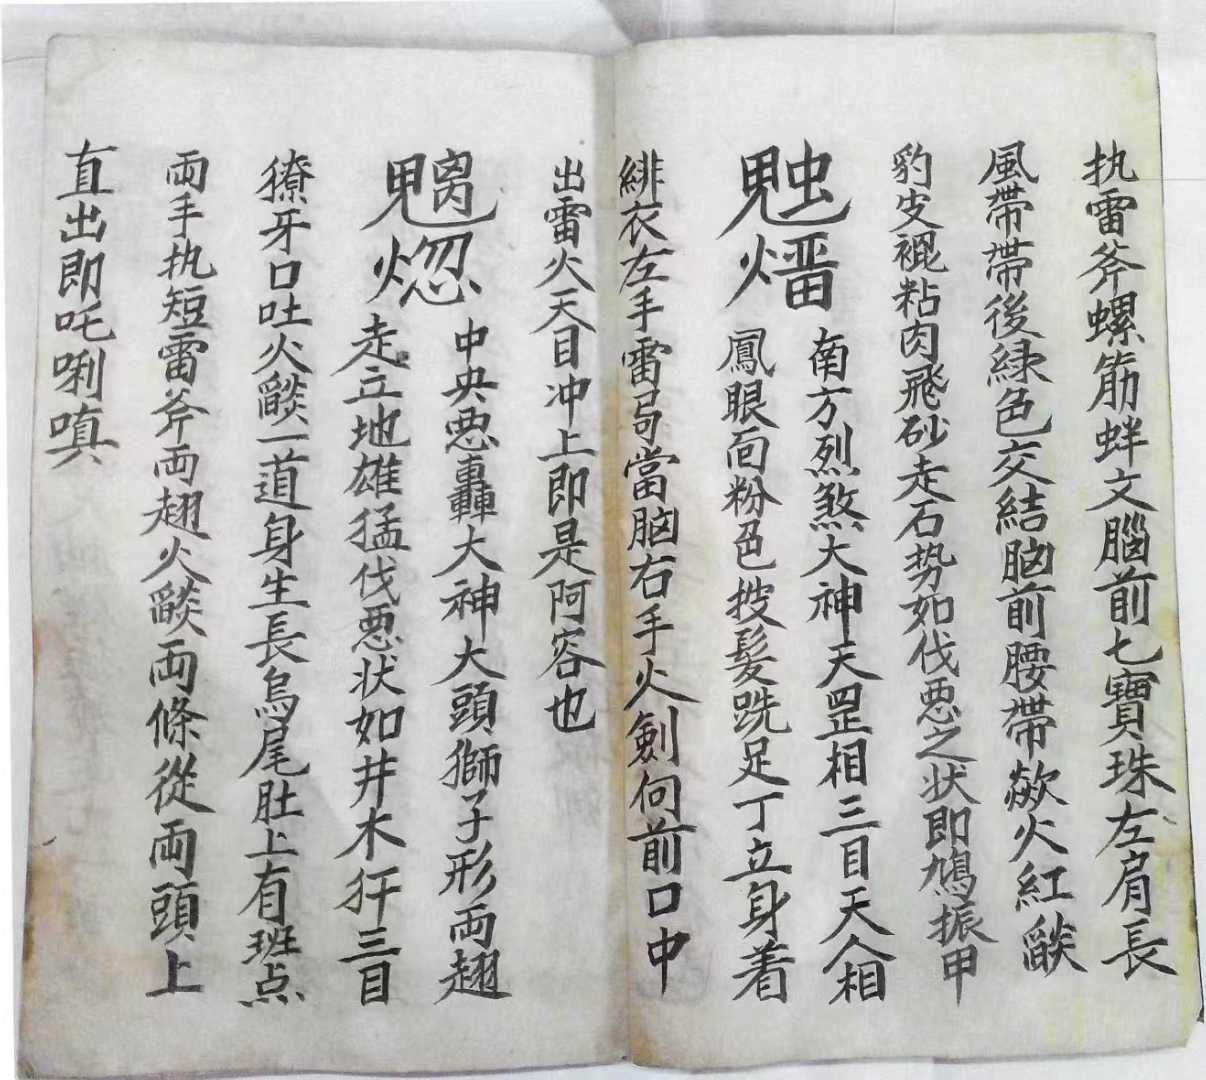 执雷斧螺筋蚌文腦前七寶珠左肩長
風帶帶後緑色交結胸前腰帶歘火紅燄
豹皮裩粘肉飛砂走石势如伐恶之状即鳩振甲
南方烈煞大神天罡相三目天人相
鳳眼面粉色披髮跣足丁立身着
緋衣左手雷局當胸右手火劍向前口中
出雷火天目冲上即是阿容也
中央恶轟大神大頭獅子形両翅
走立地雄猛伐恶状如井木犴三目
獠牙口吐火燄一道身生長鳥尾肚上有班点
両手执短雷斧両翅火燄両條從両頭上
直出即吒唎嗔